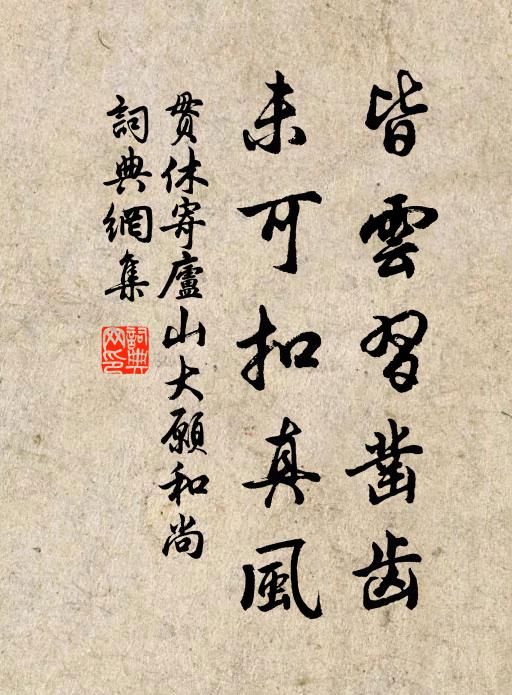 皆雲習鑿齿
未可扣真風
贯休寄廬山大願和尚
詞典網集
詞典网印